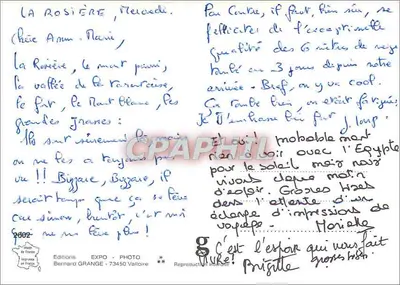 LA ROSIÈRE, Mercredi.
Chère Anne-Marie,
La Rosière, le mont pourri,
la vallée de la tarentaise,
le fort, le Mont Blanc, les
grandes Jorasses :
Ils sont sûrement là mais
on ne les a toujours pas
vu !! Bizzare, Bizzare, il
serait temps que ça se lève
que sinon, bientôt, c'est moi
qui ne me lève plus !
Par contre, il faut, bien sûr, se
féliciter de l'exceptionnelle
qualité des 6 mètres de neige
tombé en 3 jours depuis notre
arrivée. Bref, on y va cool.
Ça tombe bien, on était fatigué.
Je t'embrasse bien fort
Et oui ! probablement
rien à voir avec l'Egypte
pour le soleil mais nous
vivons chaque matin
d'espoir. Grosses bises
dans l'attente d'un
échange d'impressions de
voyage.
C'est l'espoir qui nous fait
vivre !
Brigitte grosses bises.
2602
Editions EXPO - PHOTO
Bernard GRANGE - 73450 Valloire
CPAPHIL